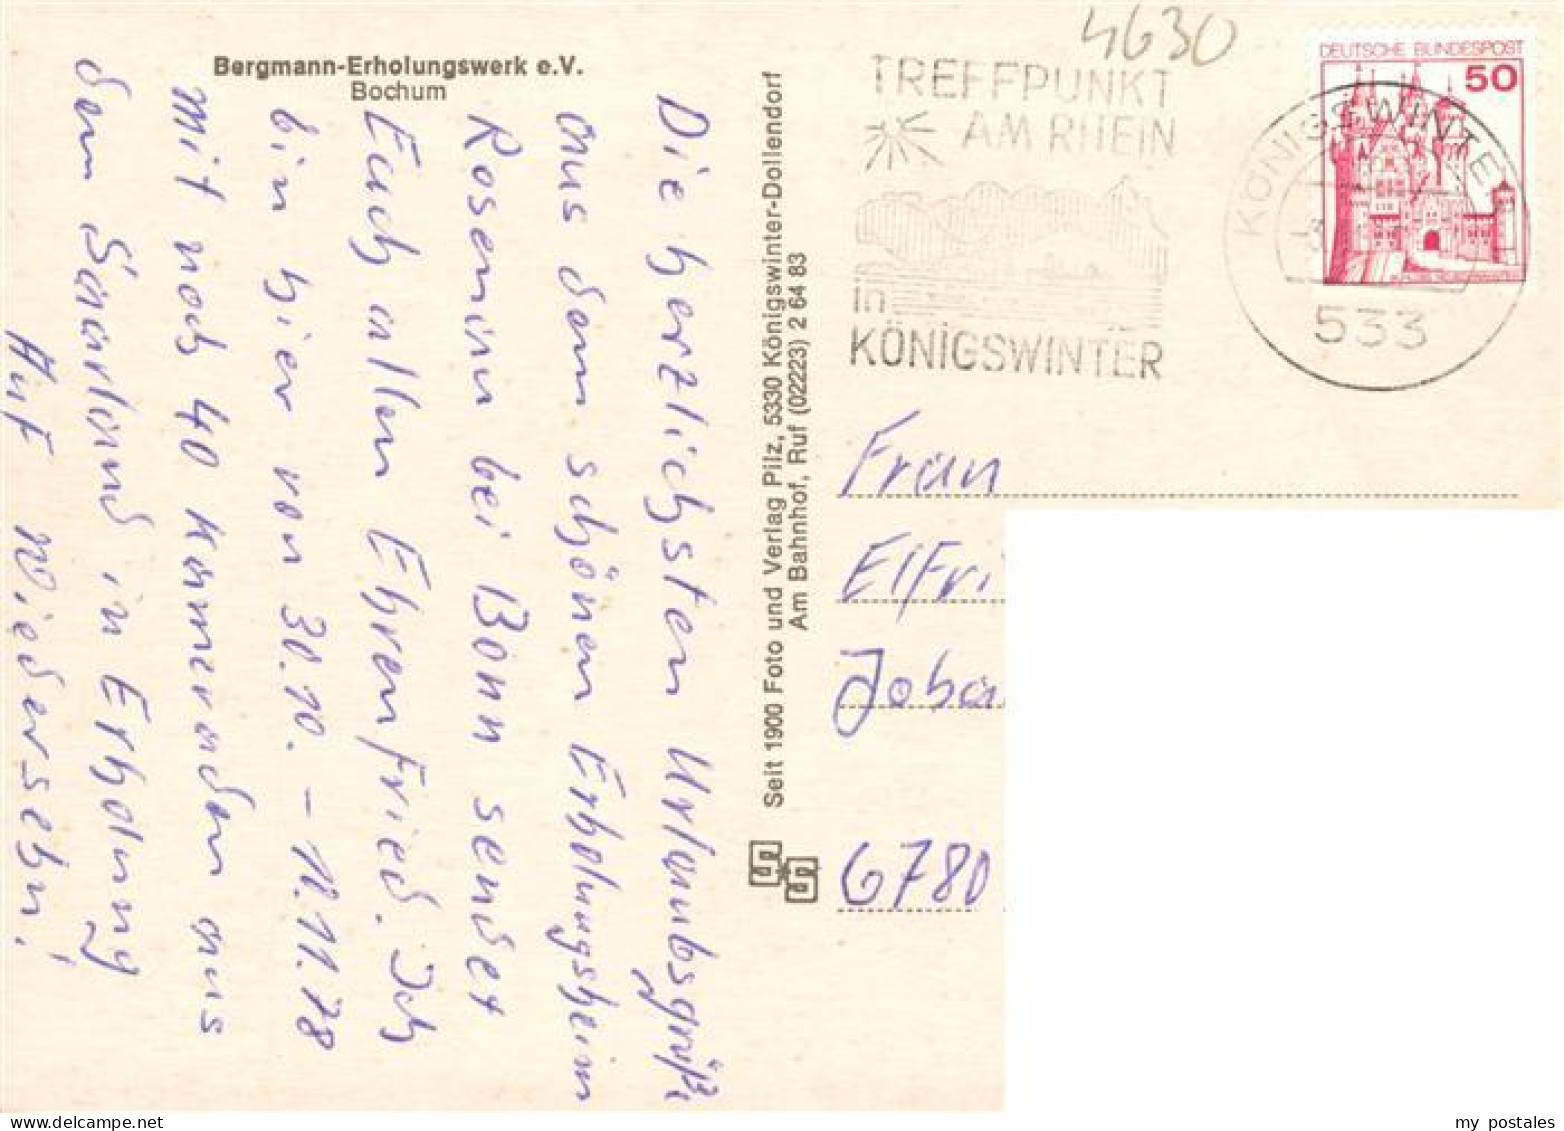 4630
Bergmann-Erholungswerk e.V.
Bochum
Die herzlichsten Urlaubsgrüße
aus dem schönen Erholungsheim
Rosenau bei Bonn sendet
Euch allen Ehrenfried. Ich
bin hier von 30.10. – 12.11.78
mit noch 40 Kameraden aus
dem Saarland in Erholung
Auf Wiedersehn!
Seit 1900 Foto und Verlag Pilz, 5330 Königswinter-Dollendorf
Am Bahnhof, Ruf (02223) 2 64 83
TREFFPUNKT
AM RHEIN
in
KÖNIGSWINTER
KÖNIGSWINTE
533
DEUTSCHE BUNDESPOST
50
Frau
Elfri
Joha
6780
my postales